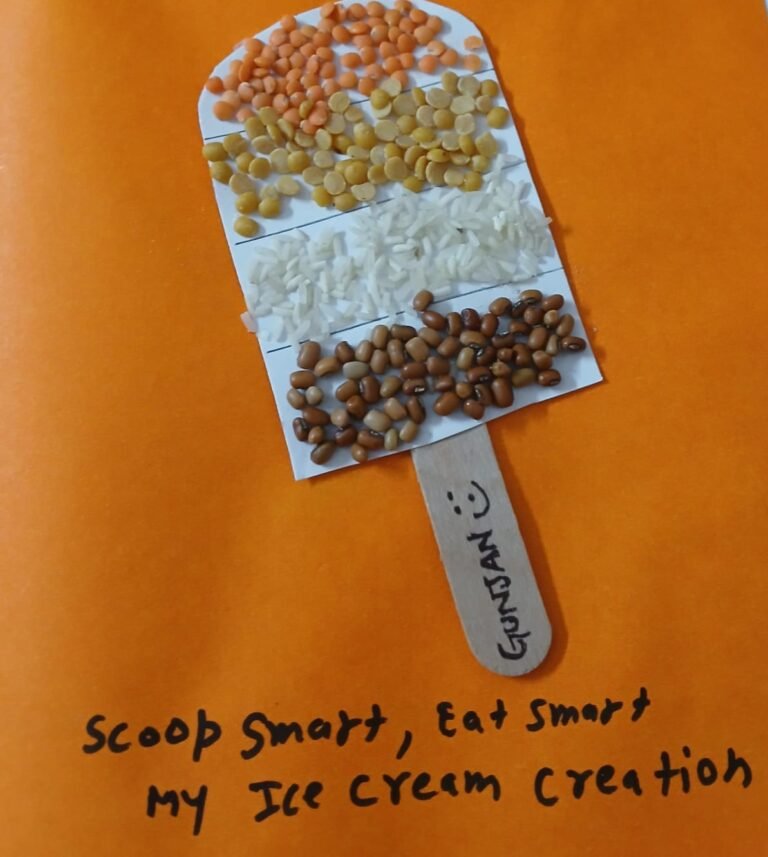 GUNJAN :)
Scoop Smart, Eat Smart
My Ice Cream Creation